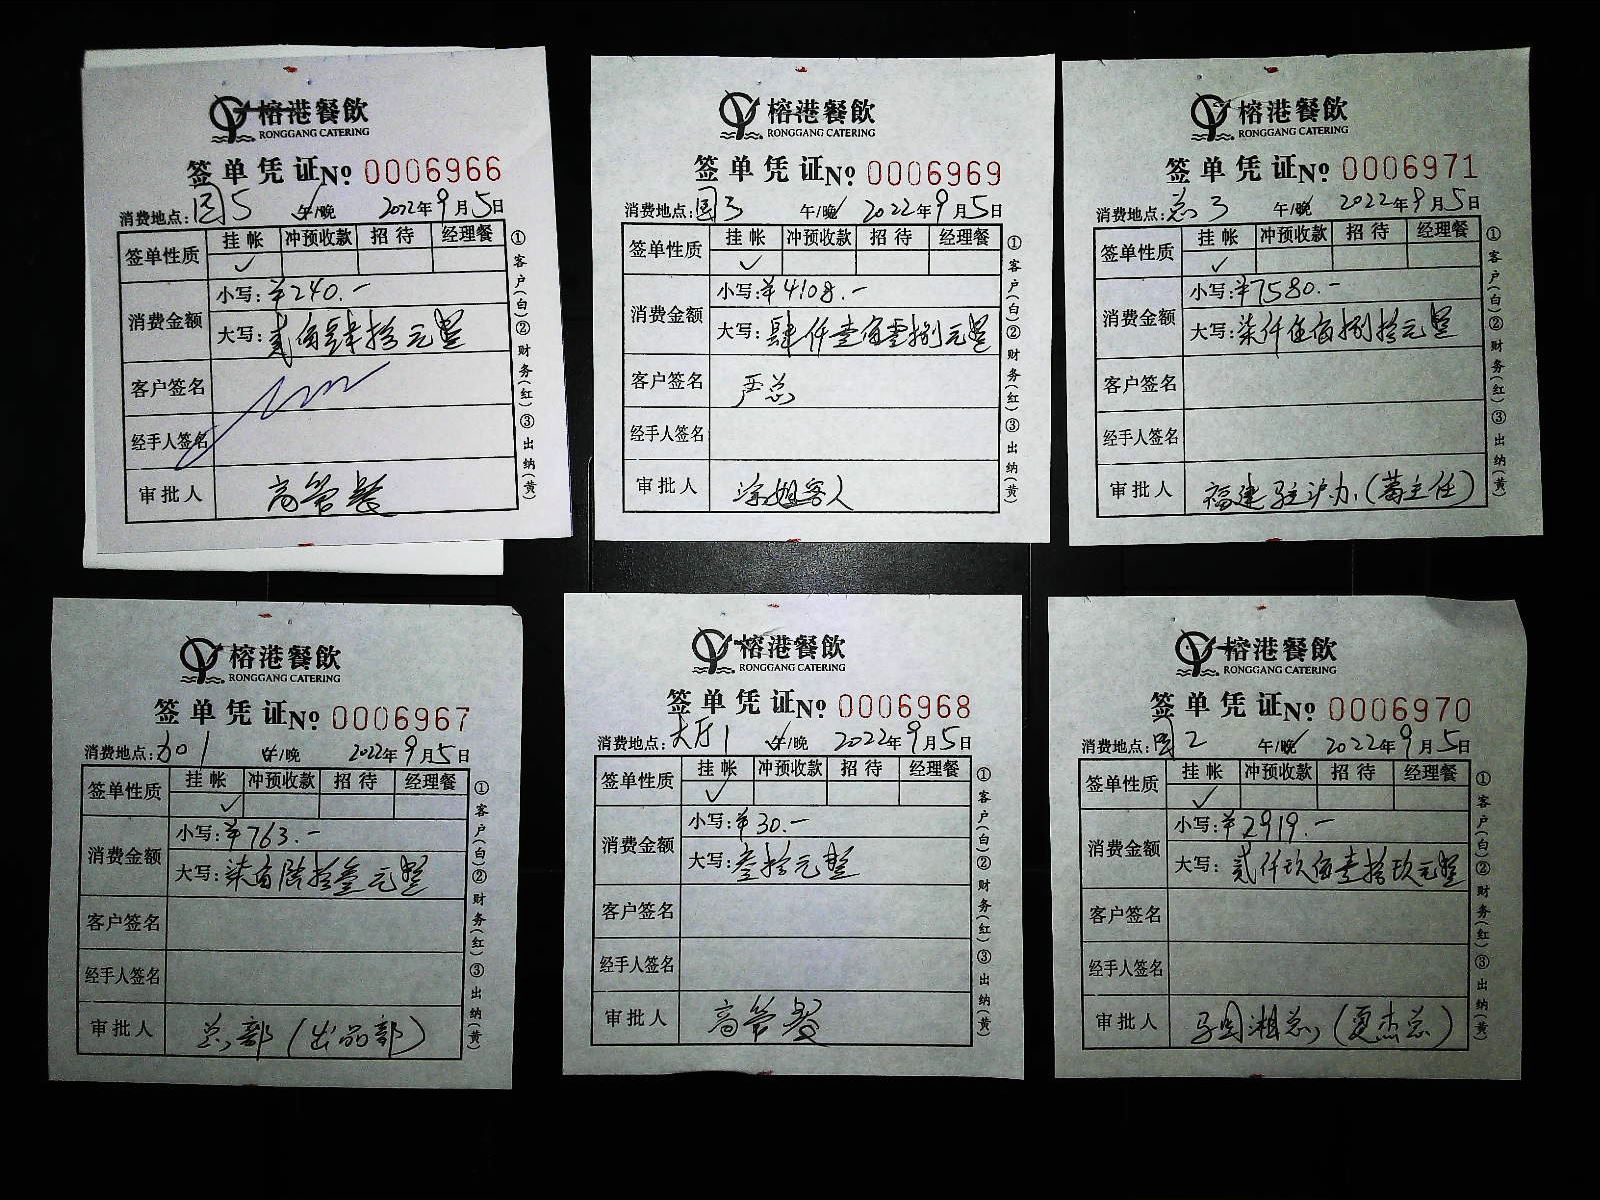 榕港餐飲
RONGGANG CATERING
签单凭证 No 0006966
消费地点:国5 午/晚 2022年9月5日
签单性质 挂帐 冲预收款 招待 经理餐
✓
消费金额 小写:¥240.-
大写:贰佰肆拾元整
客户签名
经手人签名
审批人 高管餐
①客户(白)②财务(红)③出纳(黄)
榕港餐飲
RONGGANG CATERING
签单凭证 No 0006969
消费地点:国3 午/晚 2022年9月5日
签单性质 挂帐 冲预收款 招待 经理餐
✓
消费金额 小写:¥4108.-
大写:肆仟壹佰零捌元整
客户签名 严总
经手人签名
审批人 涂姐客人
①客户(白)②财务(红)③出纳(黄)
榕港餐飲
RONGGANG CATERING
签单凭证 No 0006971
消费地点:总3 午/晚 2022年9月5日
签单性质 挂帐 冲预收款 招待 经理餐
✓
消费金额 小写:¥7580.-
大写:柒仟伍佰捌拾元整
客户签名
经手人签名
审批人 福建驻沪办(葛主任)
①客户(白)②财务(红)③出纳(黄)
榕港餐飲
RONGGANG CATERING
签单凭证 No 0006967
消费地点:加1 午/晚 2022年9月5日
签单性质 挂帐 冲预收款 招待 经理餐
✓
消费金额 小写:¥763.-
大写:柒佰陆拾叁元整
客户签名
经手人签名
审批人 总部(出品部)
①客户(白)②财务(红)③出纳(黄)
榕港餐飲
RONGGANG CATERING
签单凭证 No 0006968
消费地点:大厅1 午/晚 2022年9月5日
签单性质 挂帐 冲预收款 招待 经理餐
✓
消费金额 小写:¥30.-
大写:叁拾元整
客户签名
经手人签名
审批人 高管餐
①客户(白)②财务(红)③出纳(黄)
榕港餐飲
RONGGANG CATERING
签单凭证 No 0006970
消费地点:国2 午/晚 2022年9月5日
签单性质 挂帐 冲预收款 招待 经理餐
✓
消费金额 小写:¥2919.-
大写:贰仟玖佰壹拾玖元整
客户签名
经手人签名
审批人 马国湘总(夏杰总)
①客户(白)②财务(红)③出纳(黄)